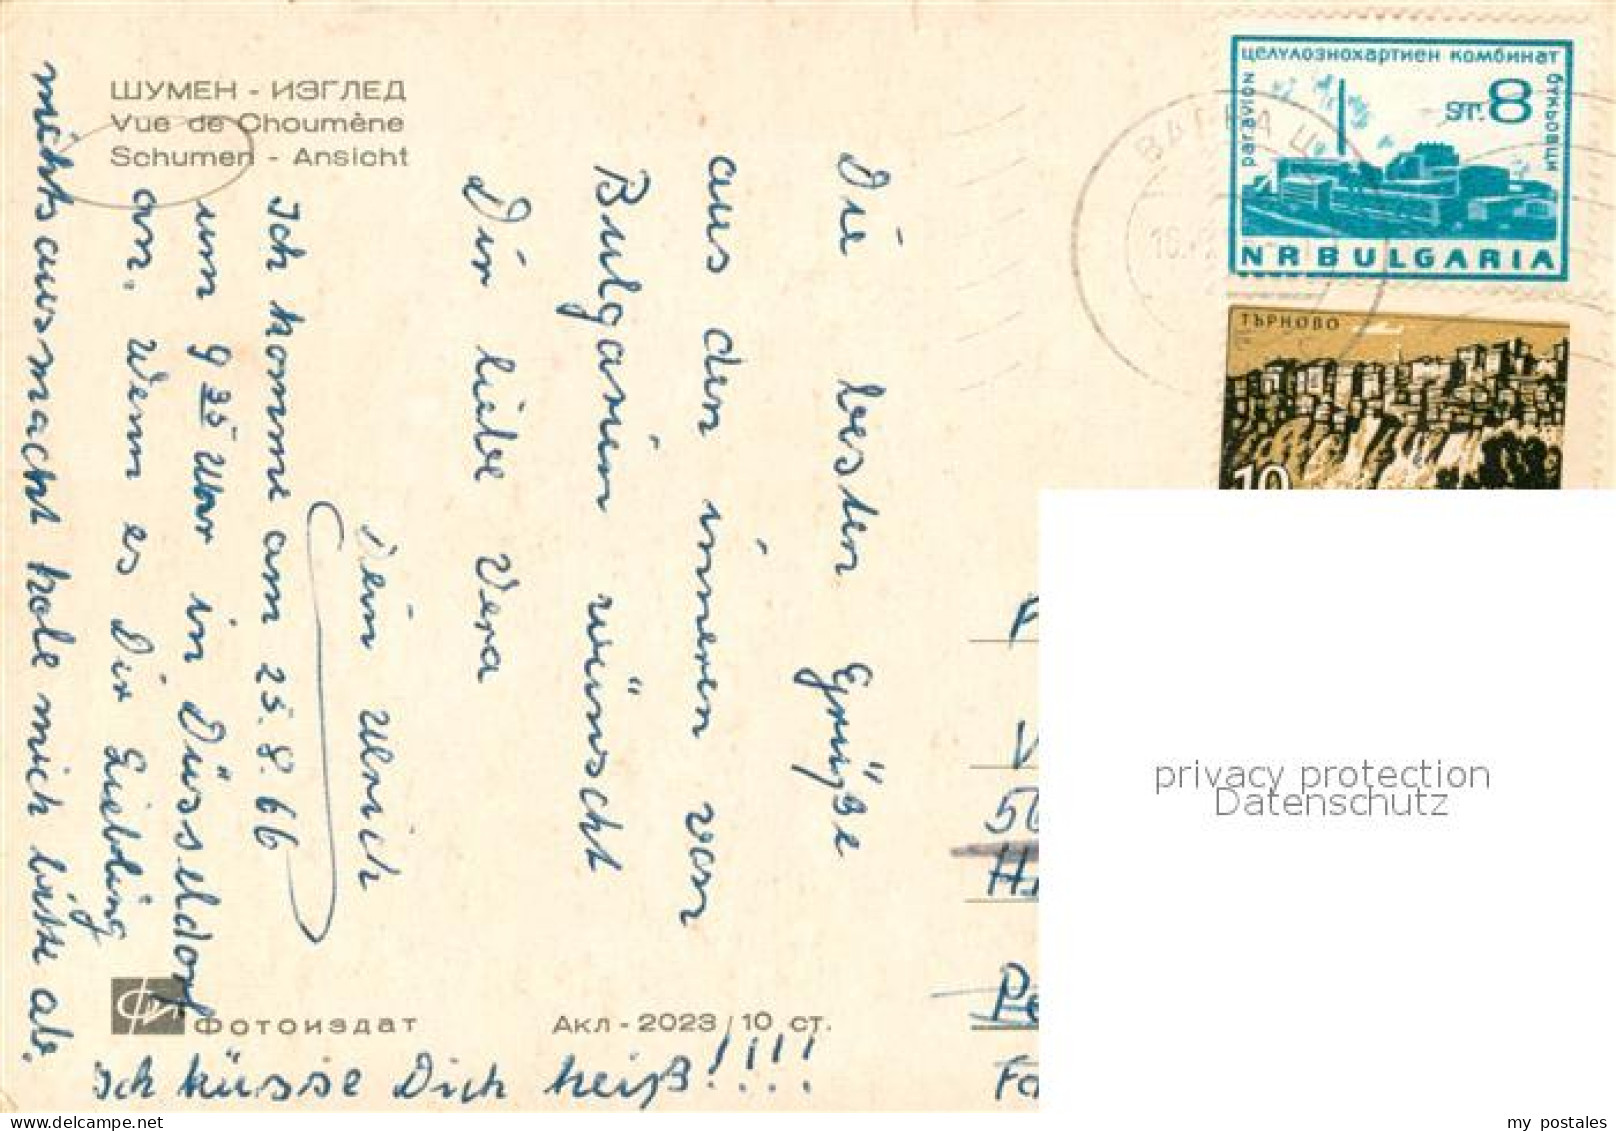 ШУМЕН - ИЗГЛЕД
Vue de Choumène
Schumen - Ansicht
Die besten Grüße
aus den inneren von
Bulgarien wünscht
Dir liebe Vera
Dein Ulrich
Ich komme am 25.8.66
um 9 35 Uhr in Düsseldorf
an. Wenn es Dir Liebling
nichts ausmacht hole mich bitte ab.
Ich küsse Dich heiß!!!!
ФОТОИЗДАТ
Акл - 2023 / 10 ст.
ЦЕЛУЛОЗНОХАРТИЕН КОМБИНАТ
par avion
БУКЬОВЦИ
ST. 8
NR BULGARIA
ТЪРНОВО
10
privacy protection
Datenschutz
my_postales